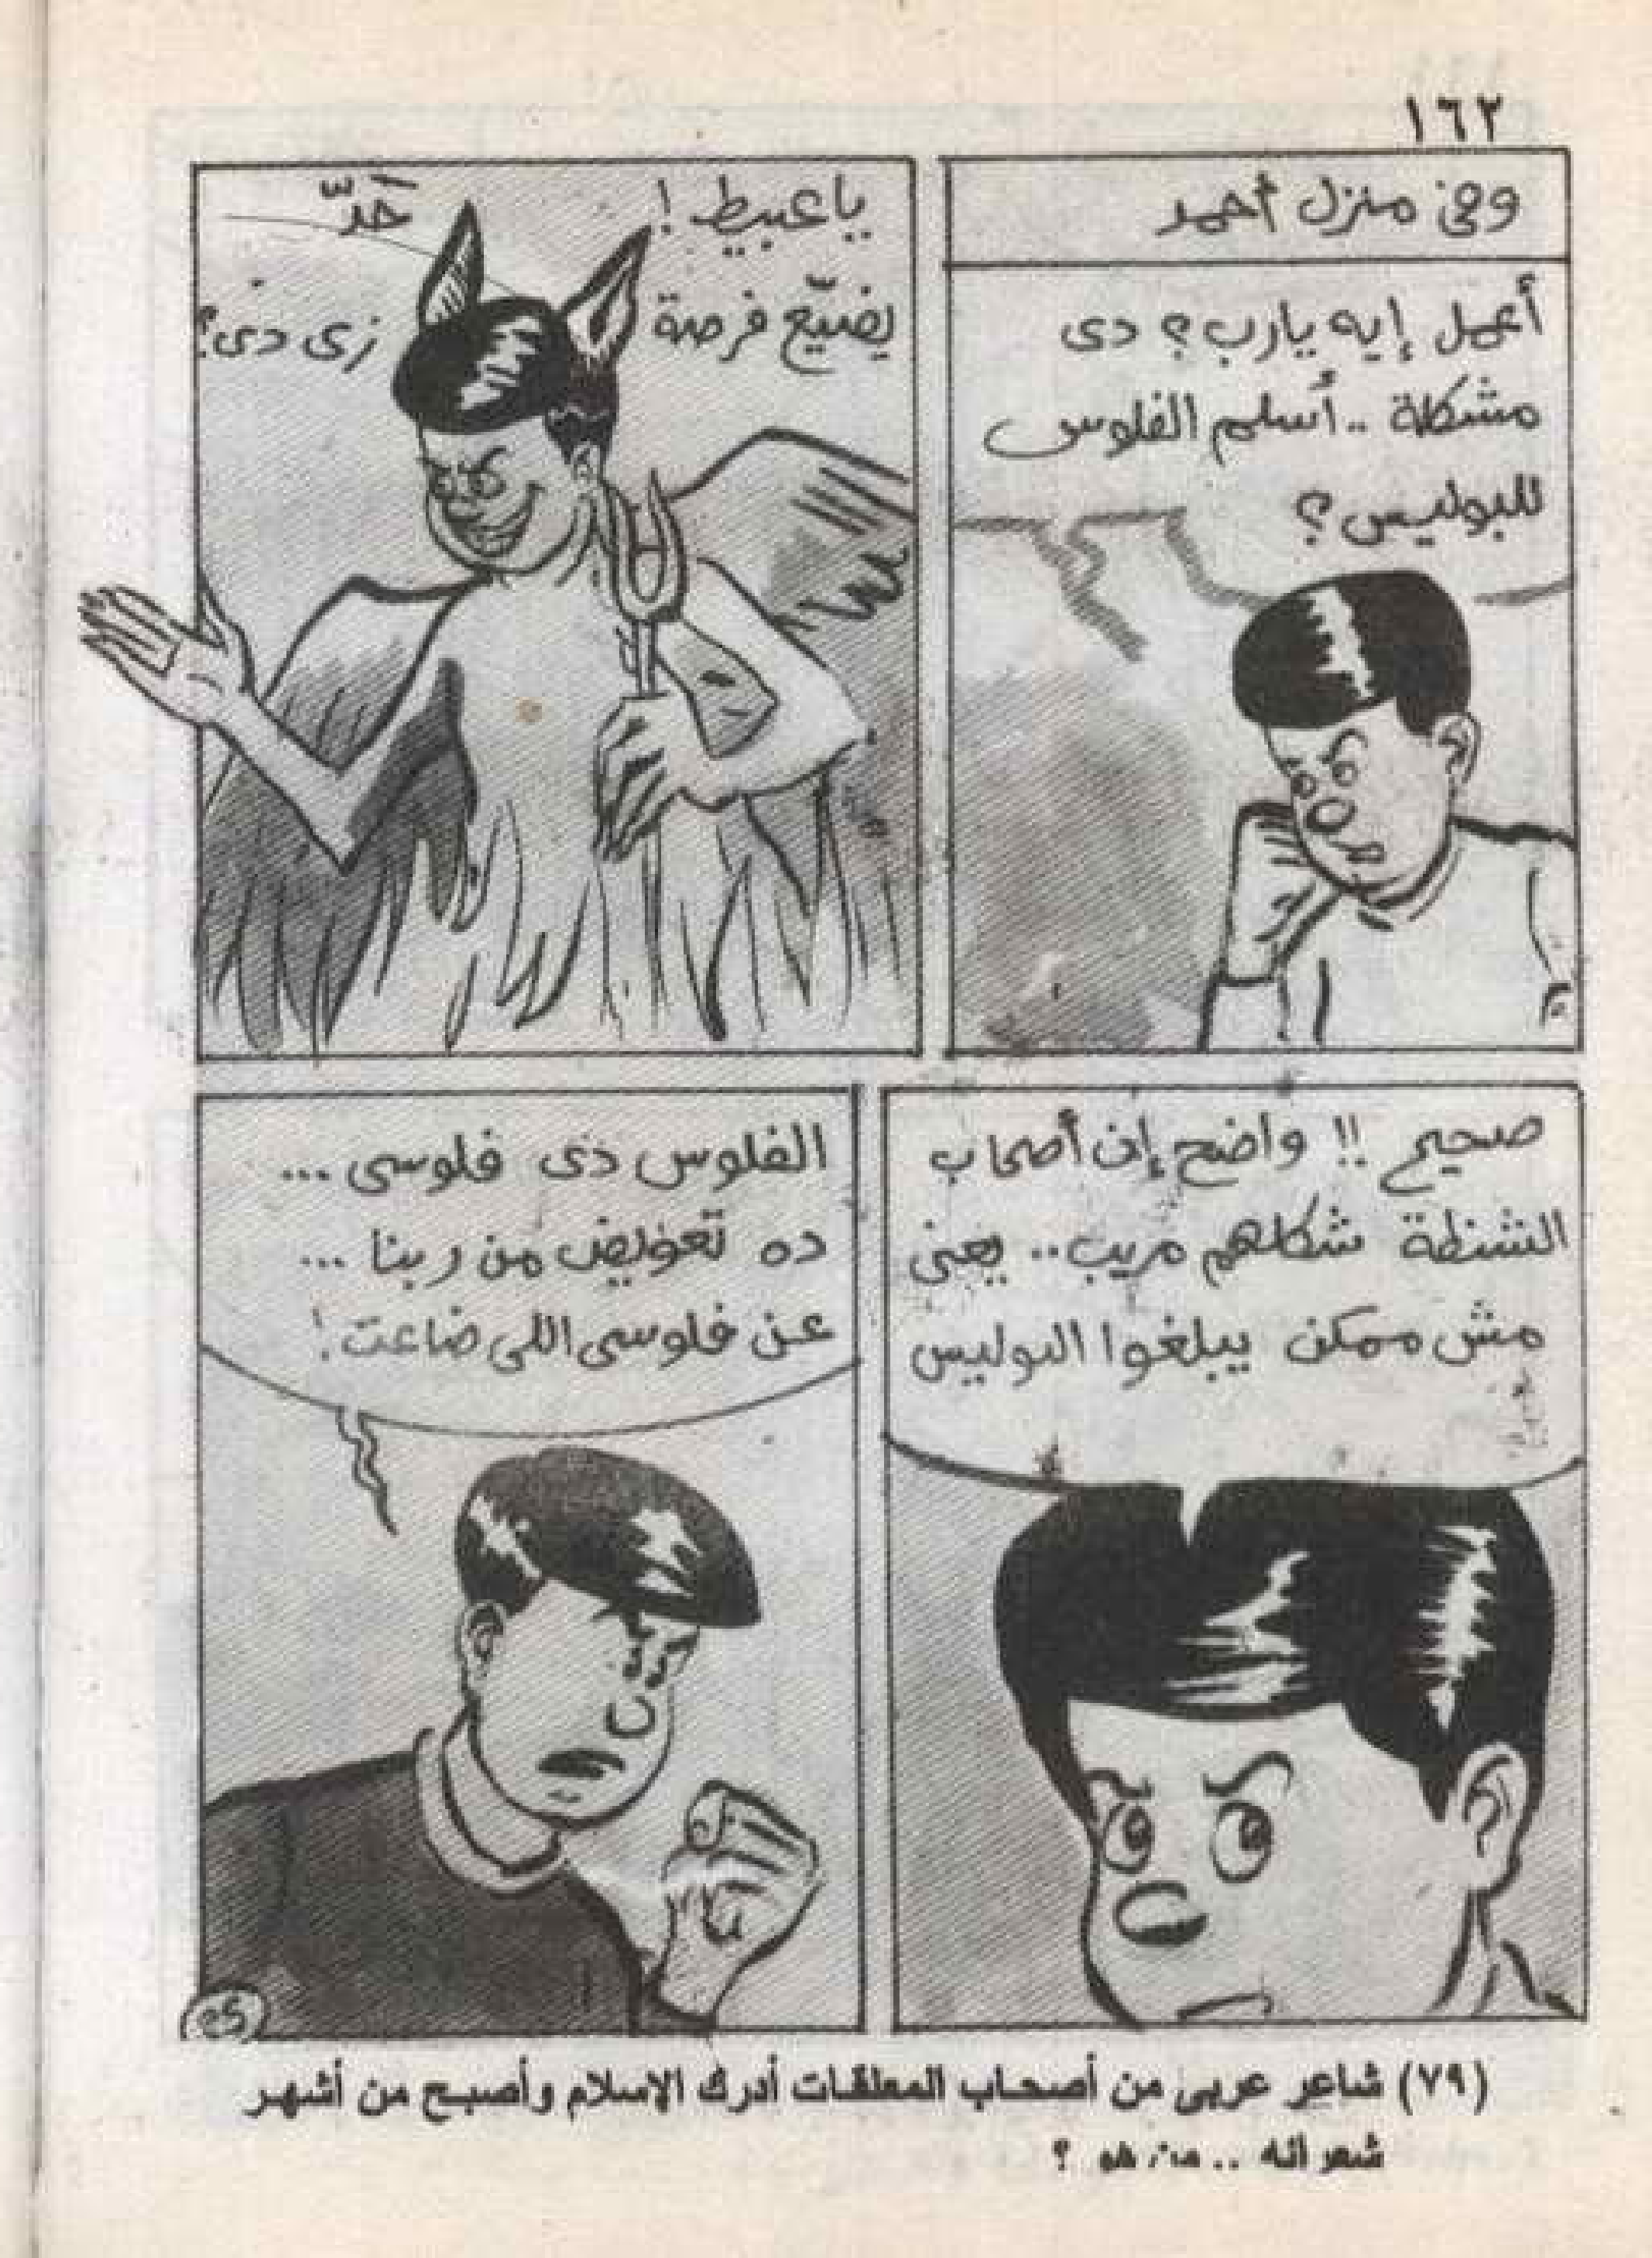 ١٦٢
وفى منزل أحمد
أعمل إيه يارب؟ دى
مشكلة .. أسلم الفلوس
للبوليس؟
ياعبيط! حَدّ
يضيّع فرصة زى دى؟
صحيح!! واضح إن أصحاب
الشنطة شكلهم مريب.. يعنى
مش ممكن يبلغوا البوليس
الفلوس دى فلوسى ...
ده تعويض من ربنا ...
عن فلوسى اللى ضاعت!
(٧٩) شاعر عربى من أصحاب المعلقات أدرك الاسلام وأصبح من أشهر
شعرائه .. من هو ؟